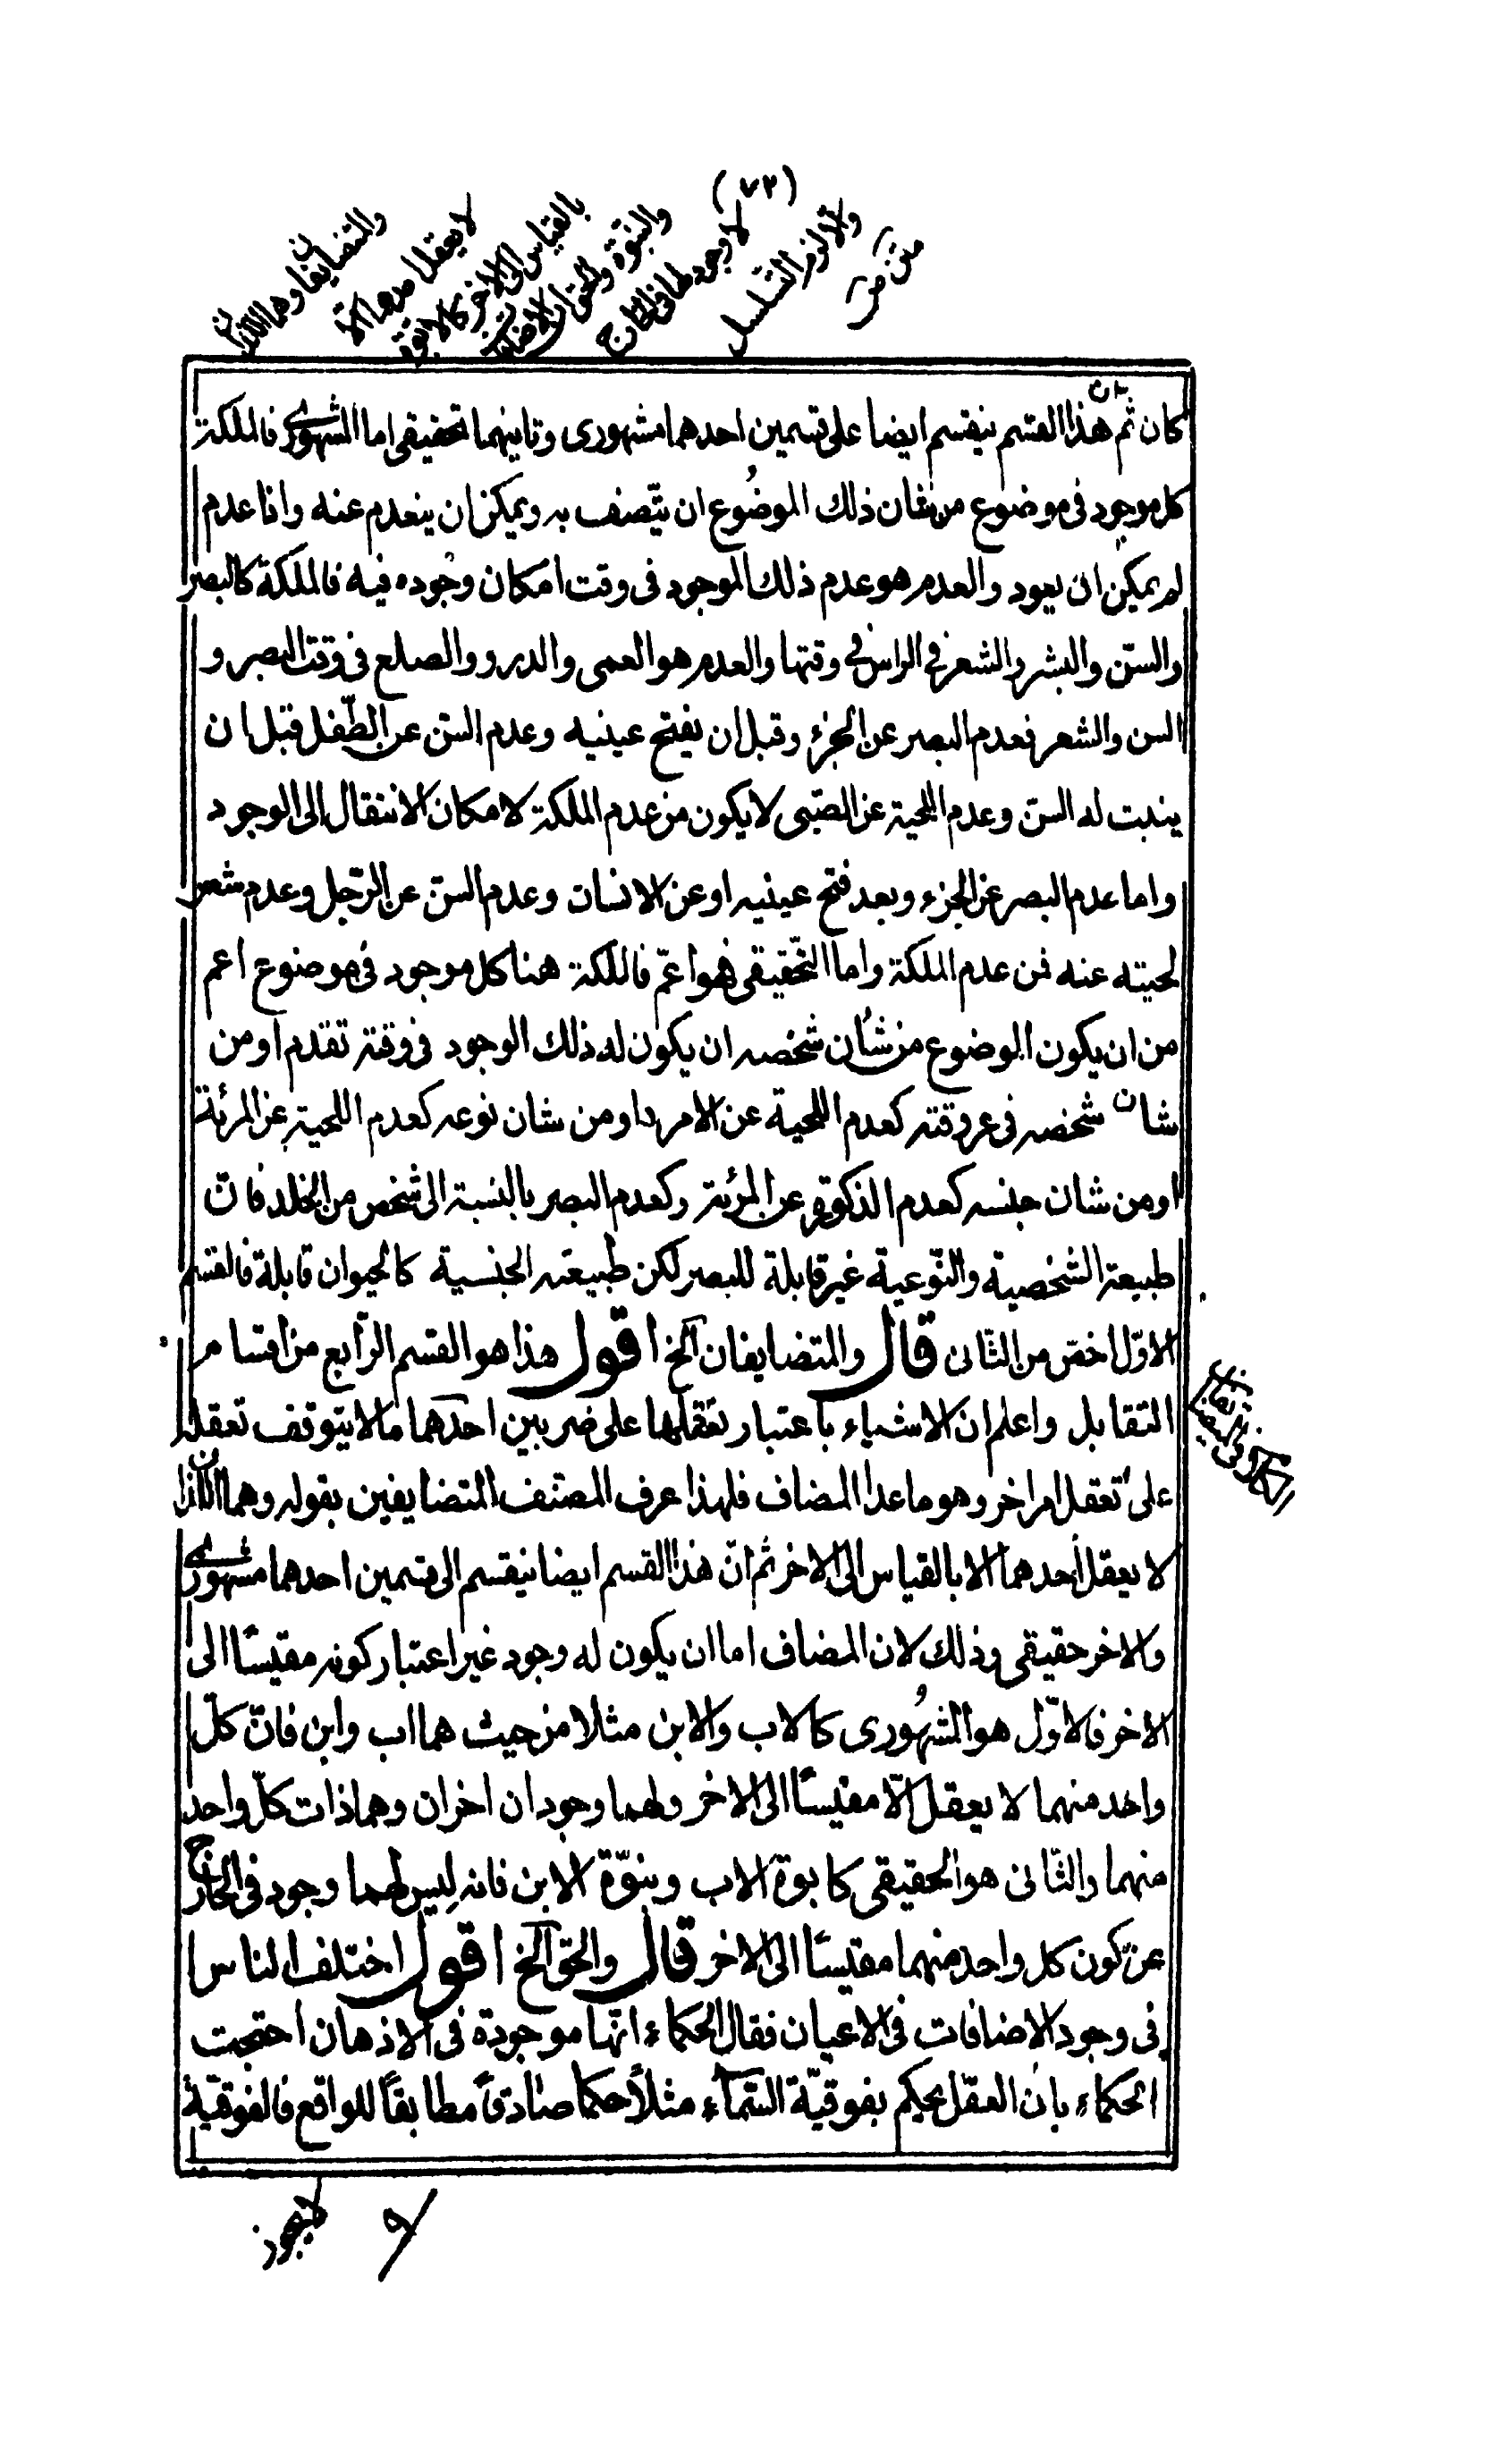 (٧٣)
والمتضايفان وهما اللذان
لا يعقل احدهما الا
بالقياس الى الاخر كالابوة
والبنوة والحق ان الاضافة
لا وجود لها فى الخارج
والا لزم التسلسل
متن
كان ثم ان هذا القسم ينقسم ايضا على قسمين احدهما مشهورى وثانيهما تحقيقى اما المشهورى فالملكة
كل موجود فى موضوع من شان ذلك الموضوع ان يتصف به ويمكن ان ينعدم عنه واذا عدم
لم يمكن ان يعود والعدم هو عدم ذلك الموجود فى وقت امكان وجوده فيه فالملكة كالبصر
والسن والبشر والشعر فى الراس فى وقتها والعدم هو العمى والدرو والصلع فى وقت البصر و
السن والشعر فعدم البصر عن الجرء وقبل ان يفتح عينيه وعدم السن عن الطفل قبل ان
ينبت له السن وعدم اللحية عن الصبى لا يكون من عدم الملكة لامكان الانتقال الى الوجود
واما عدم البصر عن الجرء وبعد فتح عينيه او عن الانسان وعدم السن عن الرجل وعدم شعر
لحيته عنه فمن عدم الملكة واما التحقيقى فهو اعم فالملكة هنا كل موجود فى موضوع اعم
من ان يكون الموضوع من شان شخصه ان يكون له ذلك الوجود فى وقته تقدم او من
شان شخصه فى غير وقته كعدم اللحية عن الامرد او من شان نوعه كعدم اللحية عن المرئة
او من شان جنسه كعدم الذكورة عن المرئة وكعدم البصر بالنسبة الى شخص من الخلد فان
طبيعته الشخصية والنوعية غير قابلة للبصر لكن طبيعته الجنسية كالحيوان قابلة فالقسم
الاول اخص من الثانى قال والمتضايفان الخ اقول هذا هو القسم الرابع من اقسام
التقابل واعلم ان الاشياء باعتبار تعقلها على ضربين احدهما ما لا يتوقف تعقله
على تعقل امر اخر وهو ما عدا المضاف فلهذا عرف المصنف المتضايفين بقوله وهما اللذان
لا يعقل احدهما الا بالقياس الى الاخر ثم ان هذا القسم ايضا ينقسم الى قسمين احدهما مشهورى
والاخر حقيقى وذلك لان المضاف اما ان يكون له وجود غير اعتبار كونه مقيسا الى
الاخر فالاول هو المشهورى كالاب والابن مثلا من حيث هما اب وابن فان كل
واحد منهما لا يعقل الا مقيسا الى الاخر ولهما وجودان اخران وهما ذات كل واحد
منهما والثانى هو الحقيقى كابوة الاب وبنوة الابن فانه ليس لهما وجود فى الخارج
عن كون كل واحد منهما مقيسا الى الاخر قال والحق الخ اقول اختلف الناس
فى وجود الاضافات فى الاعيان فقال الحكماء انها موجودة فى الاذهان احتجت
الحكماء بان العقل يحكم بفوقية السماء مثلا حكما صادقا مطابقا للواقع فالفوقية